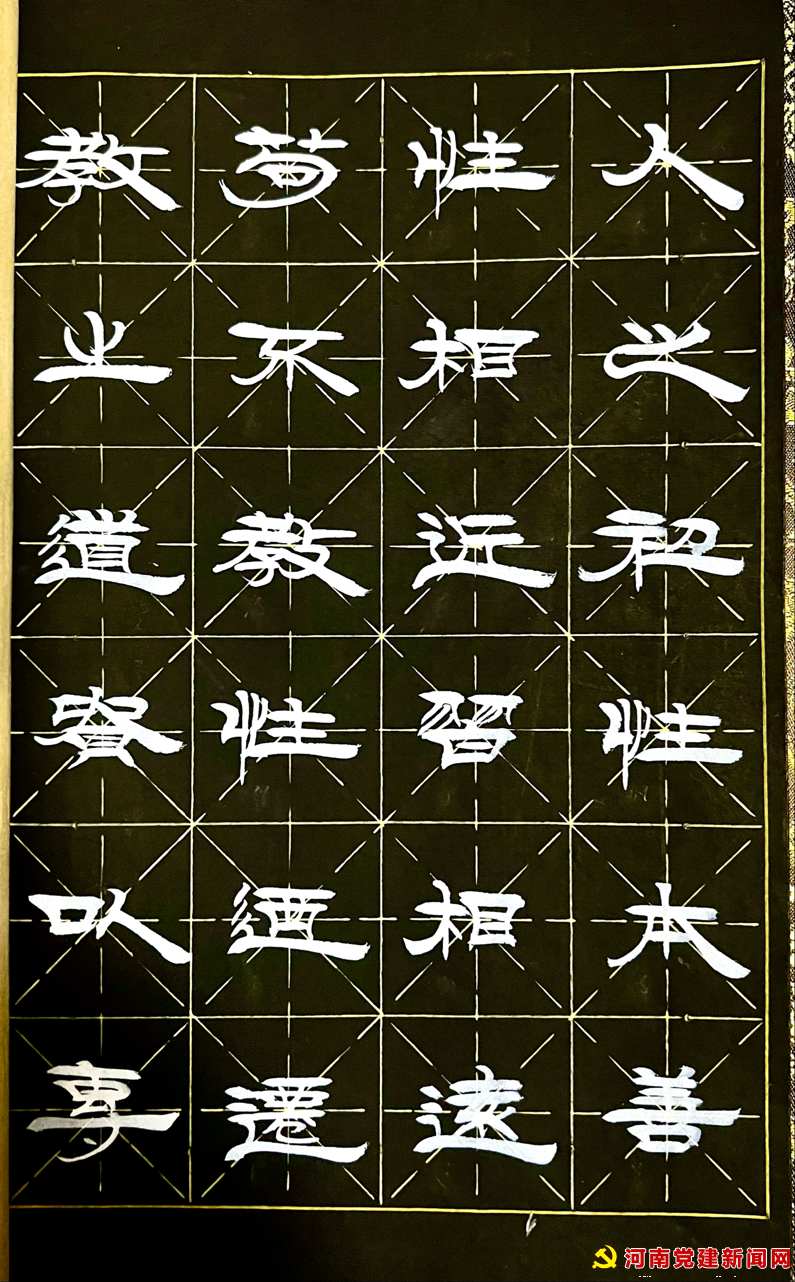 人之初性本善
性相近習相遠
苟不教性迺遷
教之道貴以專
河南党建新闻网